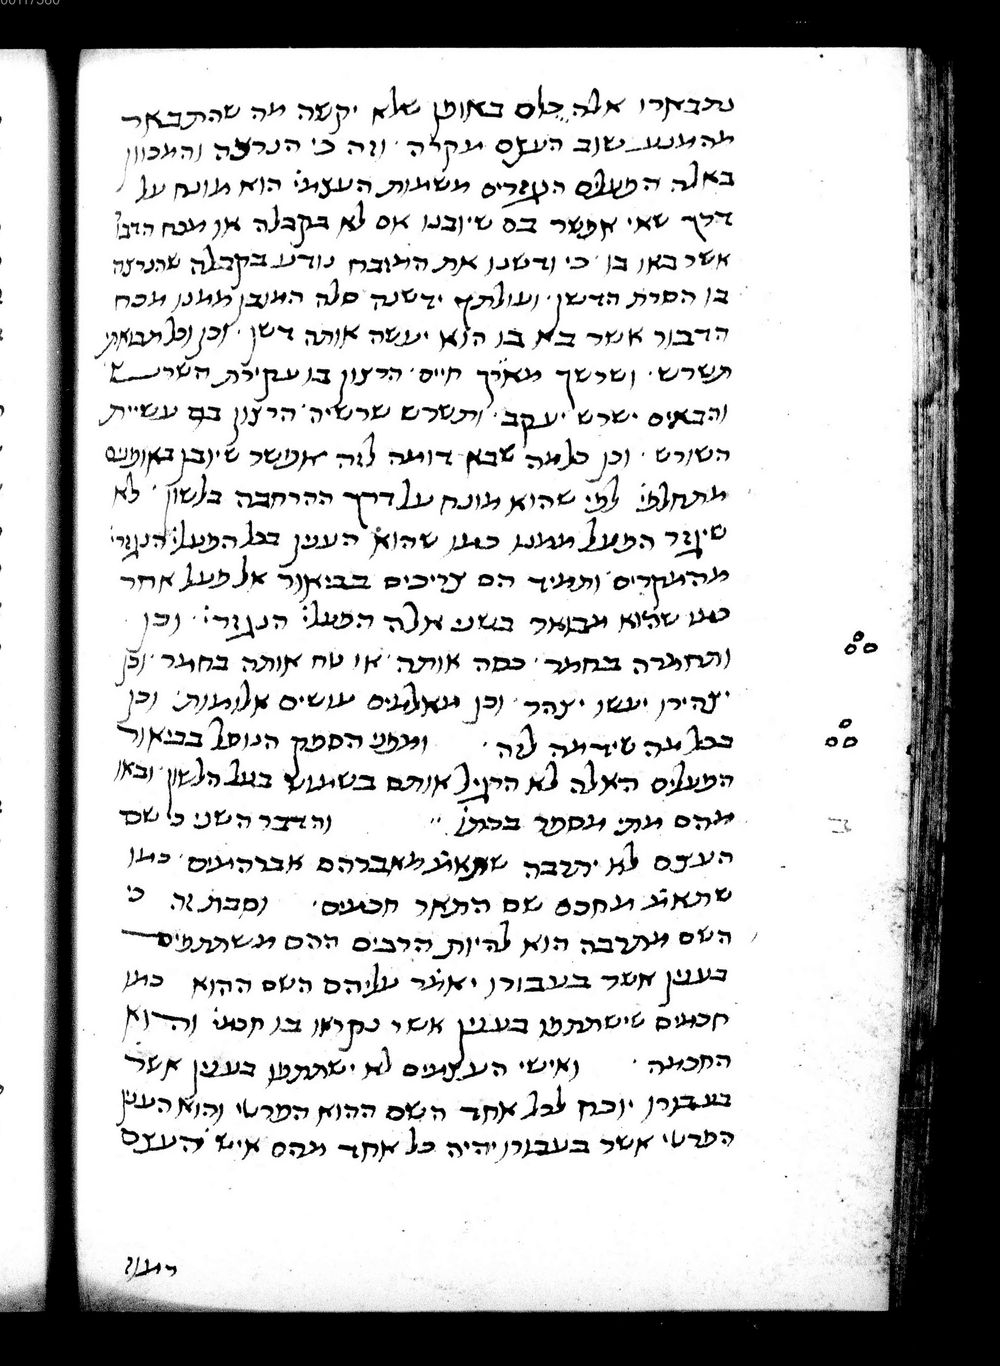 נתבארו אלה כלם באופן שלא יקשה מה שהתבאר
מהמנע שוב העצם מקרה · וזה כי הנרצה והמכוון
באלה הפעלים הנגזרים משמות העצמי׳ הוא מונח על
דרך שאי אפשר בם שיובנו אם לא בקבלה או מכח הדבו׳
אשר באו בו · כי ודשנו את המזבח נודע בקבלה שהנרצה
בו הסרת הדשן · ועולתך ידשנה סלה המובן ממנו מכח
הדבור אשר בא בו הוא יעשה אותה דשן · וכן וכל תבואתי
תשרש · ושרשך מארץ חיים · הרצון בו עקירת השרש
והבאים ישרש יעקב · ותשרש שרשיה · הרצון בם עשיית
השורש · וכן כל מה שבא דומה לזה אפשר שיובן באופנים
מתחלפי׳ לפי שהוא מונח על דרך ההרחבה בלשון · לא
שיגזר הפועל ממנו כמו שהוא הענין בכל הפעלי׳ הנגזרי׳
מהמקרים · ותמיד הם צריכים בביאור אל פועל אחר
כמו שהוא מבואר בשני אלה הפעלי׳ הנגזרי׳ · וכן
ותחמרה בחמר · כסה אותה · או טח אותה בחמר · וכן
יצהירו יעשו יצהר · וכן מאלמים עושים אלומות · וכן
בכל מה שידמה לזה · ומפני הספק הנופל בביאור
הפעלים האלה לא הרגיל אותם בשמוש בעל הלשון · ובאו
מהם מתי מספר בכתו׳ ״ והדבר השני כי שם
העצם לא יתרבה שתאמ׳ מאברהם אברהמים · כמו
שתאמ׳ מחכם שם התאר חכמים · וסבת זה כי
השם מתרבה הוא להיות הרבים ההם משתתפים
בענין אשר בעבורו יאמר עליהם השם ההוא כמו
חכמים שישתתפו בענין אשר נקראו בו חכמי׳ והוא
החכמה · ואישי העצמים לא ישתתפו בענין אשר
בעבורו יונח לכל אחד השם ההוא הפרטי והוא הענין
הפרטי אשר בעבורו יהיה כל אחד מהם איש העצם